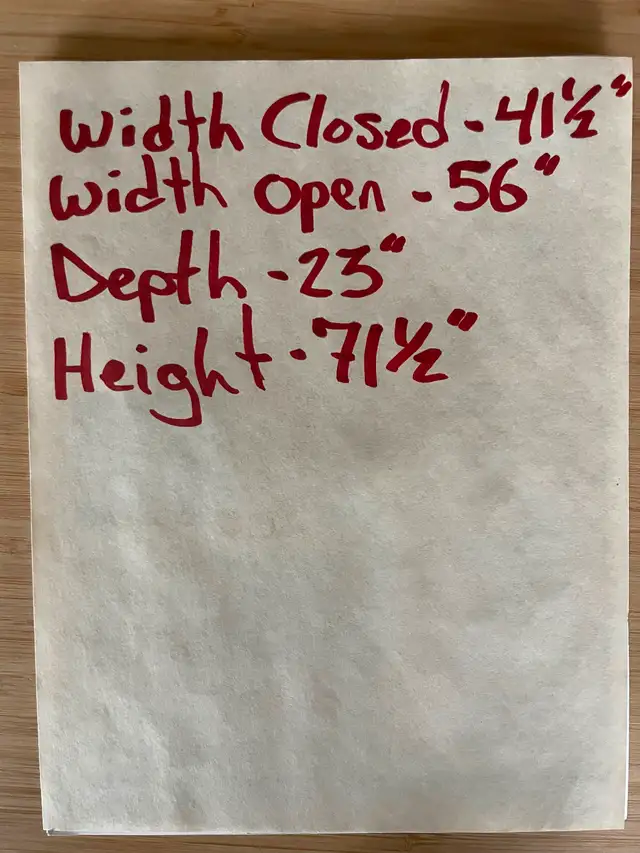 Width Closed - 41½"
Width Open - 56"
Depth - 23"
Height - 71½"